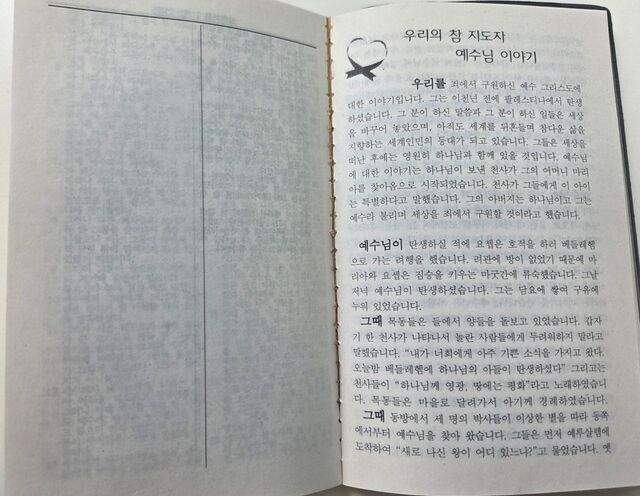 우리의 참 지도자
예수님 이야기
우리를 죄에서 구원하신 예수 그리스도에
대한 이야기입니다. 그는 이천년 전에 팔레스티나에서 탄생
하셨습니다. 그 분이 하신 말씀과 그 분이 하신 일들은 세상
을 바꾸어 놓았으며, 아직도 세계를 뒤흔들며 참다운 삶을
지향하는 세계인민의 등대가 되고 있습니다. 그들은 세상을
떠난 후에는 영원히 하나님과 함께 있을 것입니다. 예수님
에 대한 이야기는 하나님이 보낸 천사가 그의 어머니 마리
아를 찾아옴으로 시작되었습니다. 천사가 그들에게 이 아이
는 특별하다고 말했습니다. 그의 아버지는 하나님이고 그는
예수라 불리며 세상을 죄에서 구원할 것이라고 했습니다.
예수님이 탄생하실 적에 요셉은 호적을 하러 베들레헴
으로 가는 려행을 했습니다. 려관에 방이 없었기 때문에 마
리아와 요셉은 짐승을 키우는 마굿간에 류숙했습니다. 그날
저녁 예수님이 탄생하셨습니다. 그는 담요에 쌓여 구유에
누워 있었습니다.
그때 목동들은 들에서 양들을 돌보고 있었습니다. 갑자
기 한 천사가 나타나서 놀란 사람들에게 두려워하지 말라고
말했습니다. "내가 너희에게 아주 기쁜 소식을 가지고 왔다.
오늘밤 베들레헴에 하나님의 아들이 탄생하셨다" 그리고는
천사들이 "하나님께 영광, 땅에는 평화"라고 노래하였습니
다. 목동들은 마을로 달려가서 아기께 경례하였습니다.
그때 동방에서 세 명의 박사들이 이상한 별을 따라 동쪽
에서부터 예수님을 찾아 왔습니다. 그들은 먼저 예루살렘에
도착하여 "새로 나신 왕이 어디 있느냐?"고 물었습니다. 옛